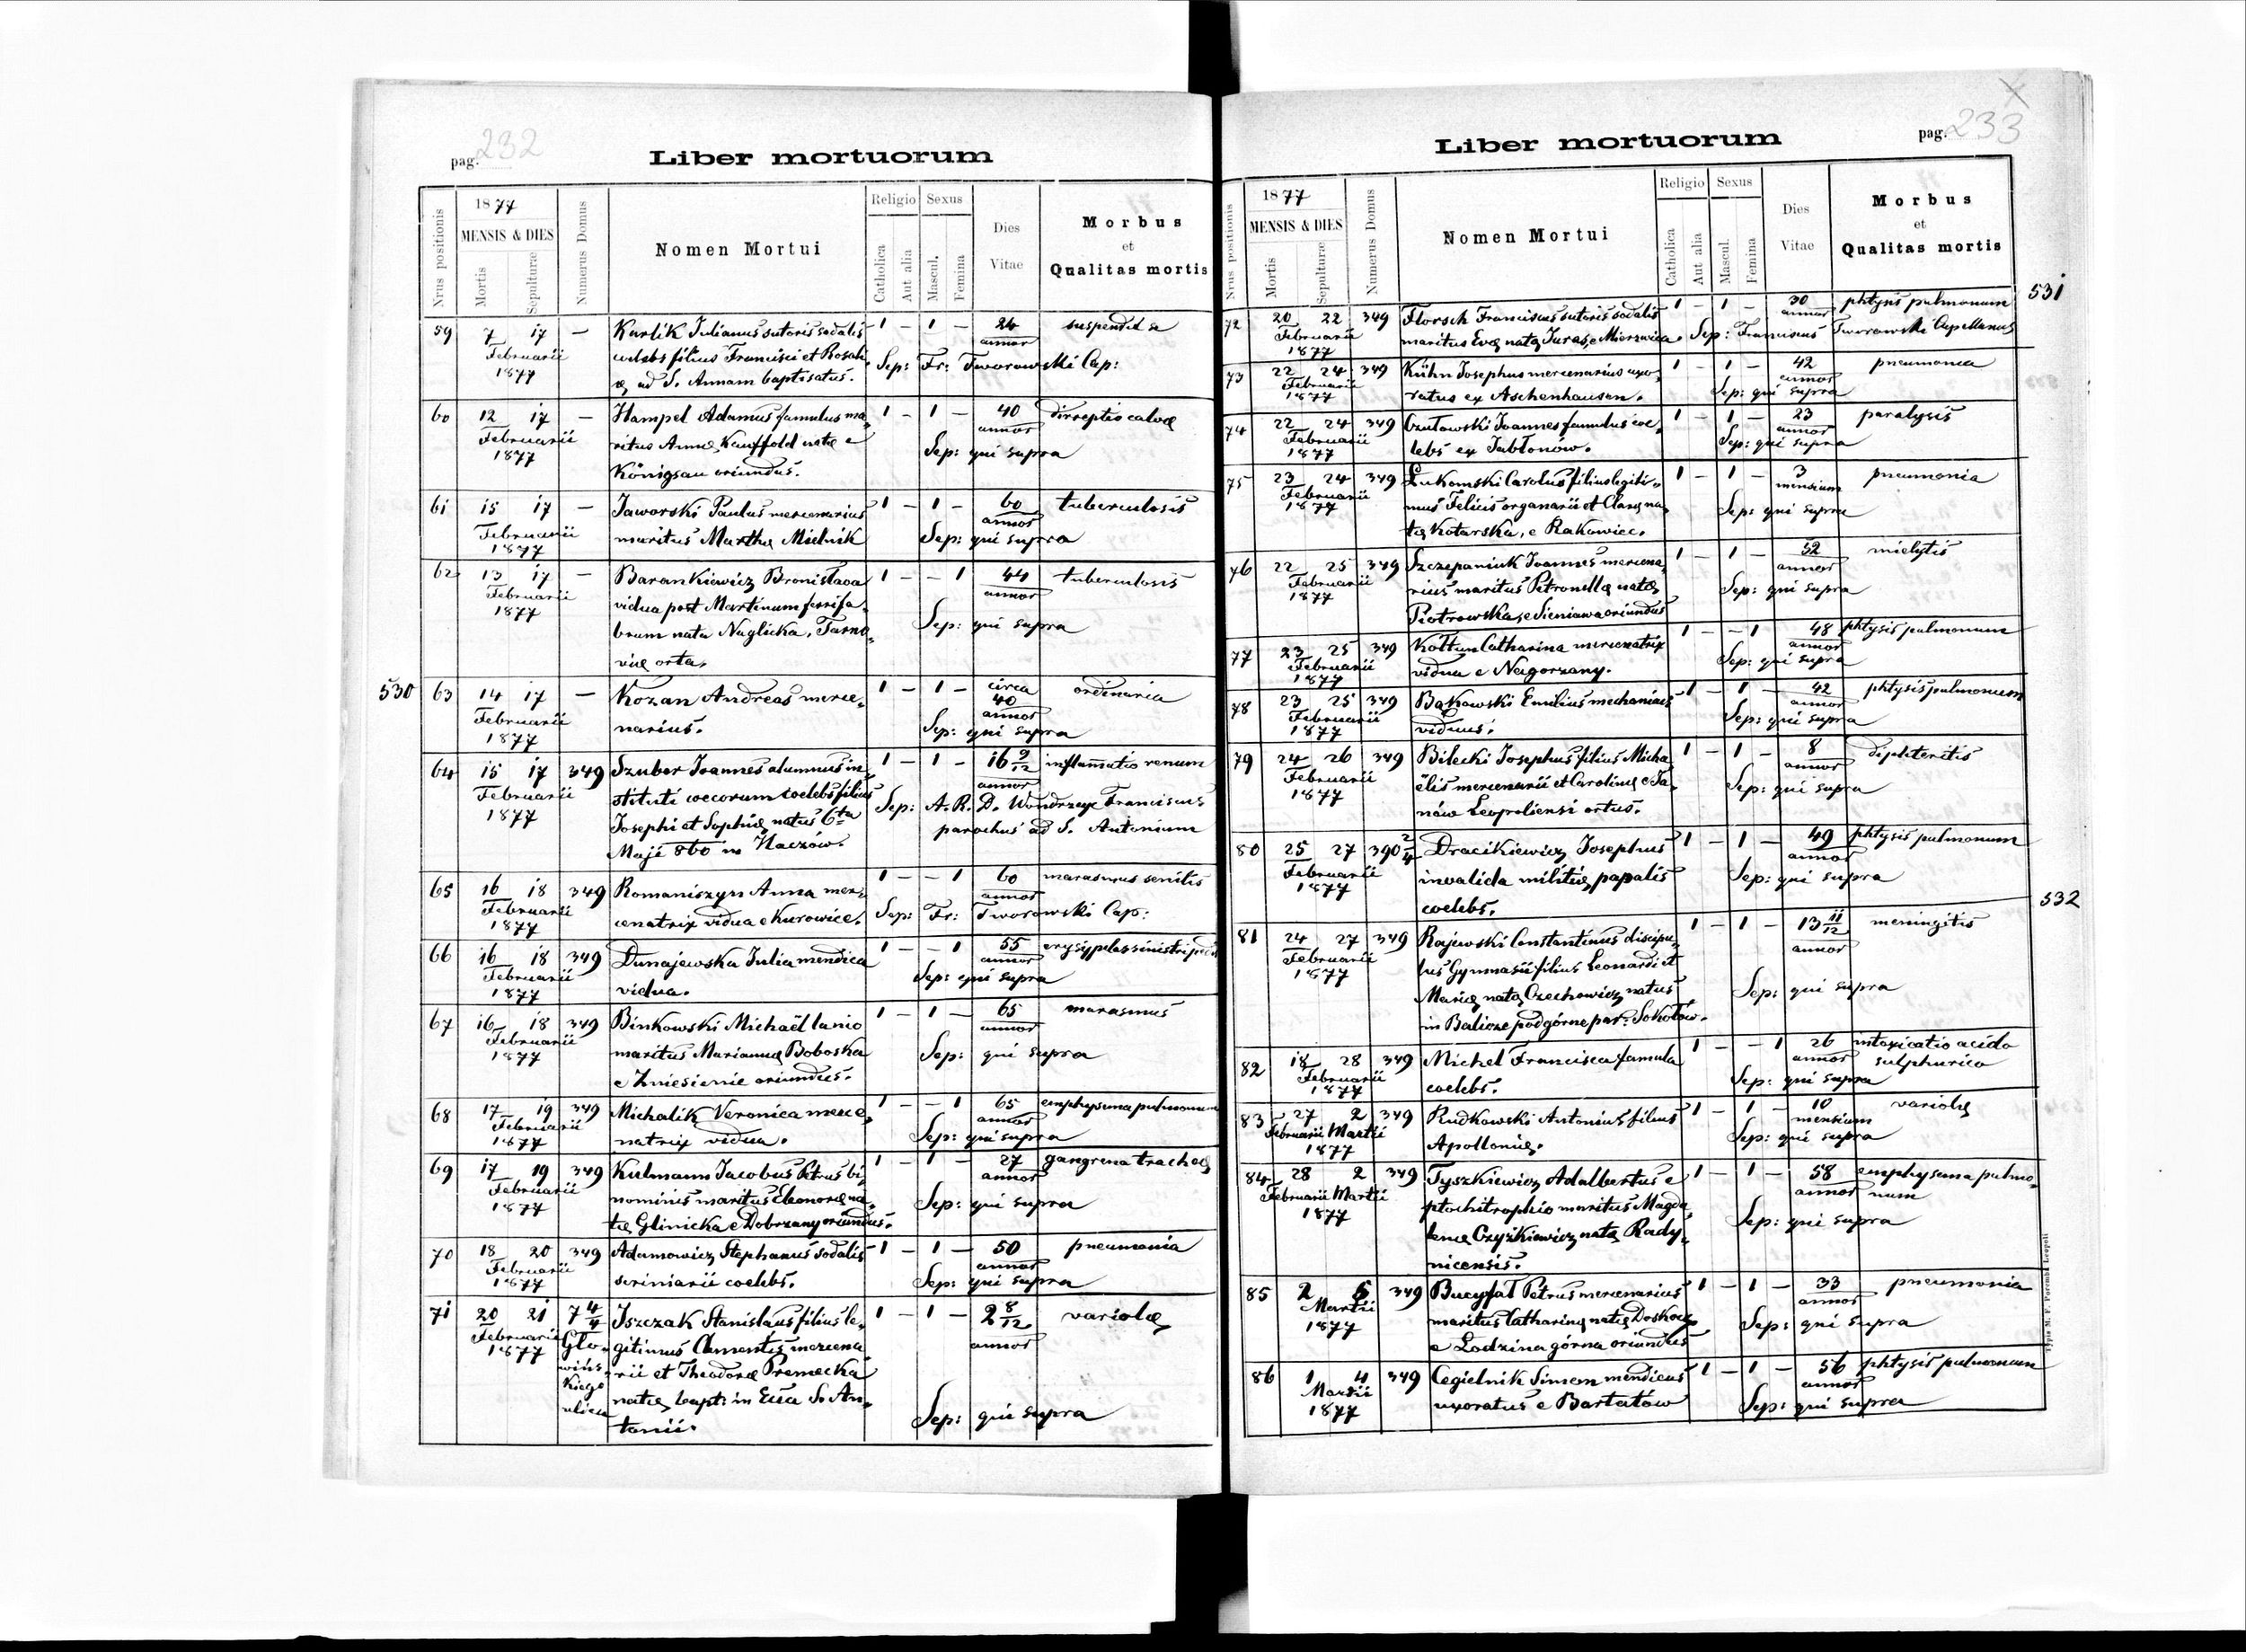 pag. 232
Liber mortuorum
Nrus positionis
1877
MENSIS & DIES
Mortis
Sepulturæ
Numerus Domus
Nomen Mortui
Religio
Catholica
Aut alia
Sexus
Mascul.
Femina
Dies
Vitae
Morbus
et
Qualitas mortis
59 7 17 — Karlik Julianus sutoris sodalis 1 — 1 — 24 suspendit se
Februarii coelebs filius Francisci et Rosali, annor
1877 æ, ad S. Annam baptisatus. Sep: Fr: Tworowski Cap:
60 12 17 — Hampel Adamus famulus ma, 1 — 1 — 40 dirreptio calvæ
Februarii ritus Annæ Kauffold natæ e annor
1877 Königsau oriundus. Sep: qui supra
61 15 17 — Jaworski Paulus mercenarius 1 — 1 — 60 tuberculosis
Februarii maritus Marthæ Mielnik annor
1877 Sep: qui supra
62 13 17 — Barankiewicz Bronisława 1 — — 1 44 tuberculosis
Februarii vidua post Martinum ferrifa, annor
1877 brum nata Naglicka, Tarno, Sep: qui supra
viæ orta.
530 63 14 17 — Kozan Andreas merce, 1 — 1 — circa 40 ordinaria
Februarii narius. annor
1877 Sep: qui supra
64 15 17 349 Szuber Joannes alumnus in, 1 — 1 — 16 9/12 inflamatio renum
Februarii stituti coecorum coelebs filius annor
1877 Josephi et Sophiæ natus 6ta Sep: A. R. D. Wondrzeyc Franciscus
Maji 860 in Haczów. parochus ad S. Antonium
65 16 18 349 Romaniszyn Anna mer, 1 — — 1 60 marasmus senilis
Februarii cenatrix vidua e Kurowice. annor
1877 Sep: Fr: Tworowski Cap:
66 16 18 349 Dunajewska Julia mendica 1 — — 1 55 erysypelas sinistri pedis
Februarii vidua. annor
1877 Sep: qui supra
67 16 18 349 Binkowski Michaël lanio 1 — 1 — 65 marasmus
Februarii maritus Mariannæ Boboska annor
1877 e Zniesienie oriundus. Sep: qui supra
68 17 19 349 Michalik Veronica merce, 1 — — 1 65 emphysema pulmonum
Februarii natrix vidua. annor
1877 Sep: qui supra
69 17 19 349 Kulmann Jacobus Petrus bi, 1 — 1 — 27 gangrena tracheæ
Februarii nominis maritus Eleonoræ na, annor
1877 tæ Glinicka e Dobrzany oriundus. Sep: qui supra
70 18 20 349 Adamowicz Stephanus sodalis 1 — 1 — 50 pneumonia
Februarii scriniarii coelebs. annor
1877 Sep: qui supra
71 20 21 7 4/4 Jszczak Stanislaus filius le, 1 — 1 — 2 8/12 variolæ
Februarii Gło, gitimus Clementis mercena annor
1877 wińs, rii et Theodoræ Premecka
kiego natæ, bapt: in Ecca S. An,
ulica tonii. Sep: qui supra
Liber mortuorum
pag. 233
X
Nrus positionis
1877
MENSIS & DIES
Mortis
Sepulturæ
Numerus Domus
Nomen Mortui
Religio
Catholica
Aut alia
Sexus
Mascul.
Femina
Dies
Vitae
Morbus
et
Qualitas mortis
531
72 20 22 349 Florsch Franciscus sutoris sodalis 1 — 1 — 30 phtysis pulmonum
Februarii maritus Evæ natæ Juras, e Mierzwica. annor
1877 Sep: Franciscus Tworowski Capellanus
73 22 24 349 Kühn Josephus mercenarius uxo, 1 — 1 — 42 pneumonia
Februarii ratus ex Aschenhausen. annor
1877 Sep: qui supra
74 22 24 349 Czutowski Joannes famulus coe, 1 — 1 — 23 paralysis
Februarii lebs ex Jabłonów. annor
1877 Sep: qui supra
75 23 24 349 Łukomski Carolus filius legiti, 1 — 1 — 3 pneumonia
Februarii mus Felicis organarii et Claræ na, mensium
1877 tæ Kotarska, e Rakowiec. Sep: qui supra
76 22 25 349 Szczepaniuk Joannes mercena, 1 — 1 — 52 mielytis
Februarii rius maritus Petronellæ natæ annor
1877 Piotrowska, e Sieniawa oriundus Sep: qui supra
77 23 25 349 Kołtun Catharina mercenatrix 1 — — 1 48 phtysis pulmonum
Februarii vidua e Nagorzany. annor
1877 Sep: qui supra
78 23 25 349 Bąkowski Emilius mechanicus 1 — 1 — 42 phtysis pulmonum
Februarii viduus. annor
1877 Sep: qui supra
79 24 26 349 Bilecki Josephus filius Micha 1 — 1 — 8 diphteritis
Februarii ëlis mercenarii et Carolinæ e Ja, annor
1877 nów Leopoliensi ortus. Sep: qui supra
80 25 27 390 2/4 Dracikiewicz Josephus 1 — 1 — 49 phtysis pulmonum
Februarii invalida militiæ papalis annor
1877 coelebs. Sep: qui supra
532
81 24 27 349 Rajewski Constantinus discipu, 1 — 1 — 13 11/12 meningitis
Februarii lus Gymnasii filius Leonardi et annor
1877 Mariæ natæ Czechowicz natus Sep: qui supra
in Balicze podgórne par: Sokołów.
82 18 28 349 Michel Francisca famula 1 — — 1 26 intoxicatio acido
Februarii coelebs. annor sulphurico
1877 Sep: qui supra
83 27 2 349 Rudkowski Antonius filius 1 — 1 — 10 variolæ
Februarii Martii Apolloniæ. mensium
1877 Sep: qui supra
84 28 2 349 Tyszkiewicz Adalbertus e 1 — 1 — 58 emphysema pulmo,
Februarii Martii ptochitrophio maritus Magda, annor num
1877 lenæ Czyżkiewicz natæ Rady, Sep: qui supra
nicensis.
85 2 5 349 Bucyfał Petrus mercenarius 1 — 1 — 33 pneumonia
Martii maritus Catharinæ natæ Doskocz annor
1877 e Lodzina górna oriundus Sep: qui supra
86 1 4 349 Cegielnik Simon mendicus 1 — 1 — 56 phtysis pulmonum
Martii uxoratus e Bartatów annor
1877 Sep: qui supra
Typis M. F. Poremba Leopoli